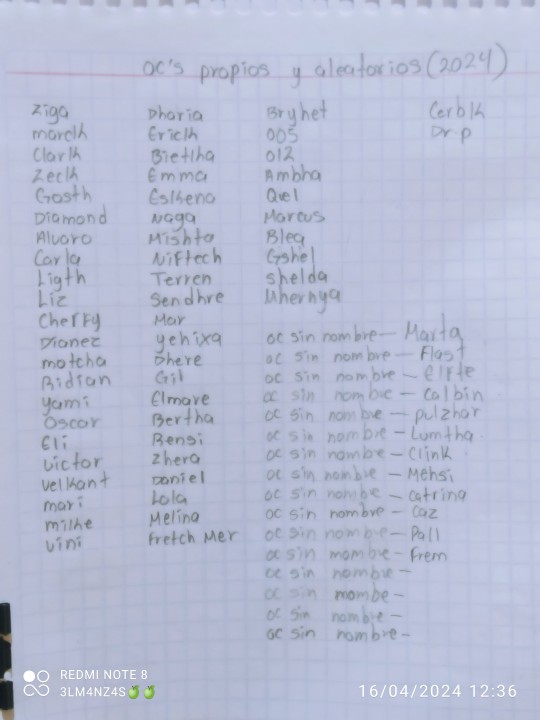 OC's propios y aleatorios (2024)
Ziga
marclk
Clarlk
Zeclk
Gosth
Diamond
Alvaro
Carla
Ligth
Liz
Cheffy
Dianez
matcha
Ridian
yami
Oscar
Eli
victor
velkant
mari
milke
vini
Dharia
Ericlk
Bietlha
Emma
Eslkena
Naga
Mishta
Niftech
Terren
Sendhre
Mar
yehixa
Dhere
Gil
Elmare
Bertha
Bensi
Zhera
Daniel
Lola
Melina
Fretch Mer
Bryhet
005
012
Ambha
Qiel
Marcus
Blea
Gshel
shelda
Uhernya
oc sin nombre - Marta
oc sin nombre - Flast
oc sin nombre - Elfte
oc sin nombre - Calbin
oc sin nombre - pulzhar
oc sin nombre - Lumtha
oc sin nombre - Clink
oc sin nombre - Mehsi
oc sin nombre - catrina
oc sin nombre - Caz
oc sin nombre - Pall
oc sin mombre - Frem
oc sin nombre -
oc sin mombe -
oc sin nombre -
oc sin nombre -
Cerblk
Dr.p
REDMI NOTE 8
3LM4NZ4S🍏🍏
16/04/2024 12:36